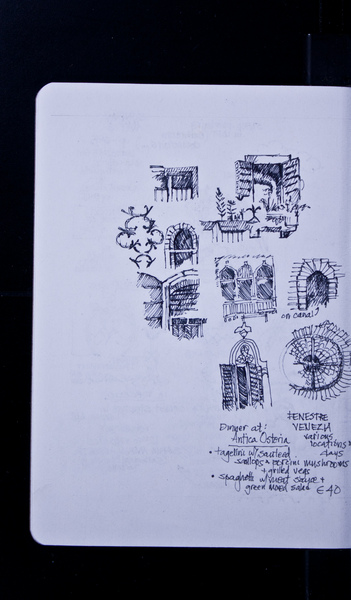 on canal
FENESTRE
VENEZIA
various
locations
days
Dinner at:
Antica Osteria
• tagellini w/ sauteed
scallops & porcini mushrooms
+ grilled vegs
• spaghetti w/ meat sauce +
green mixed salad €40